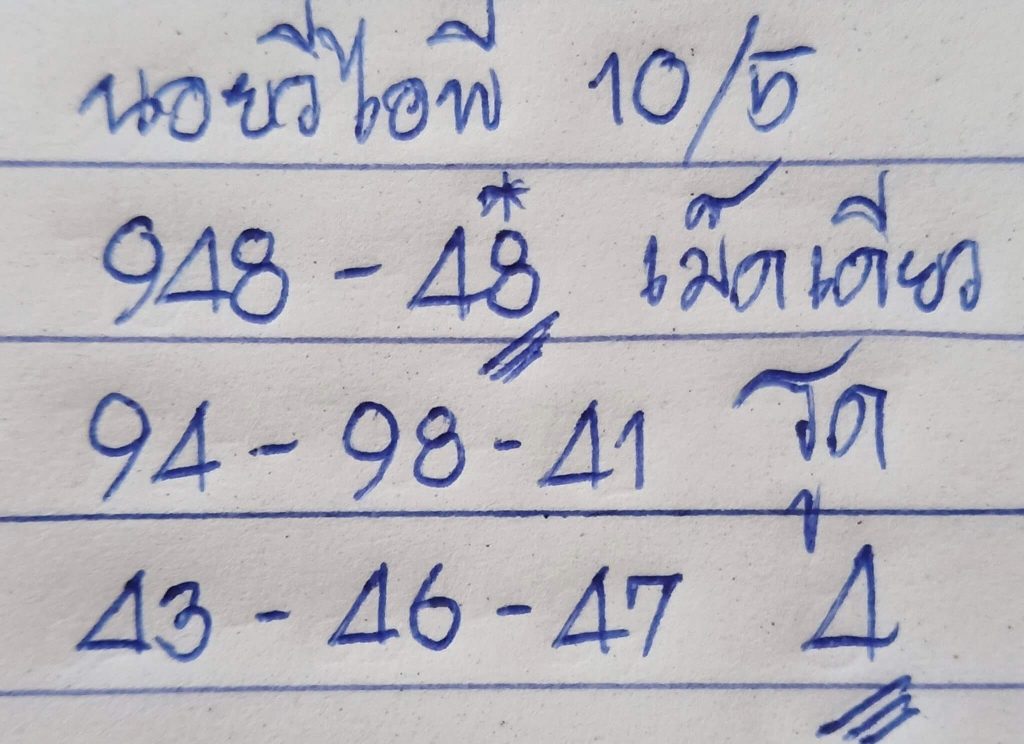 นอยวีไอพี 10/5
948 - 48* เม็ดเดียว
94 - 98 - 41 รูด
43 - 46 - 47 4